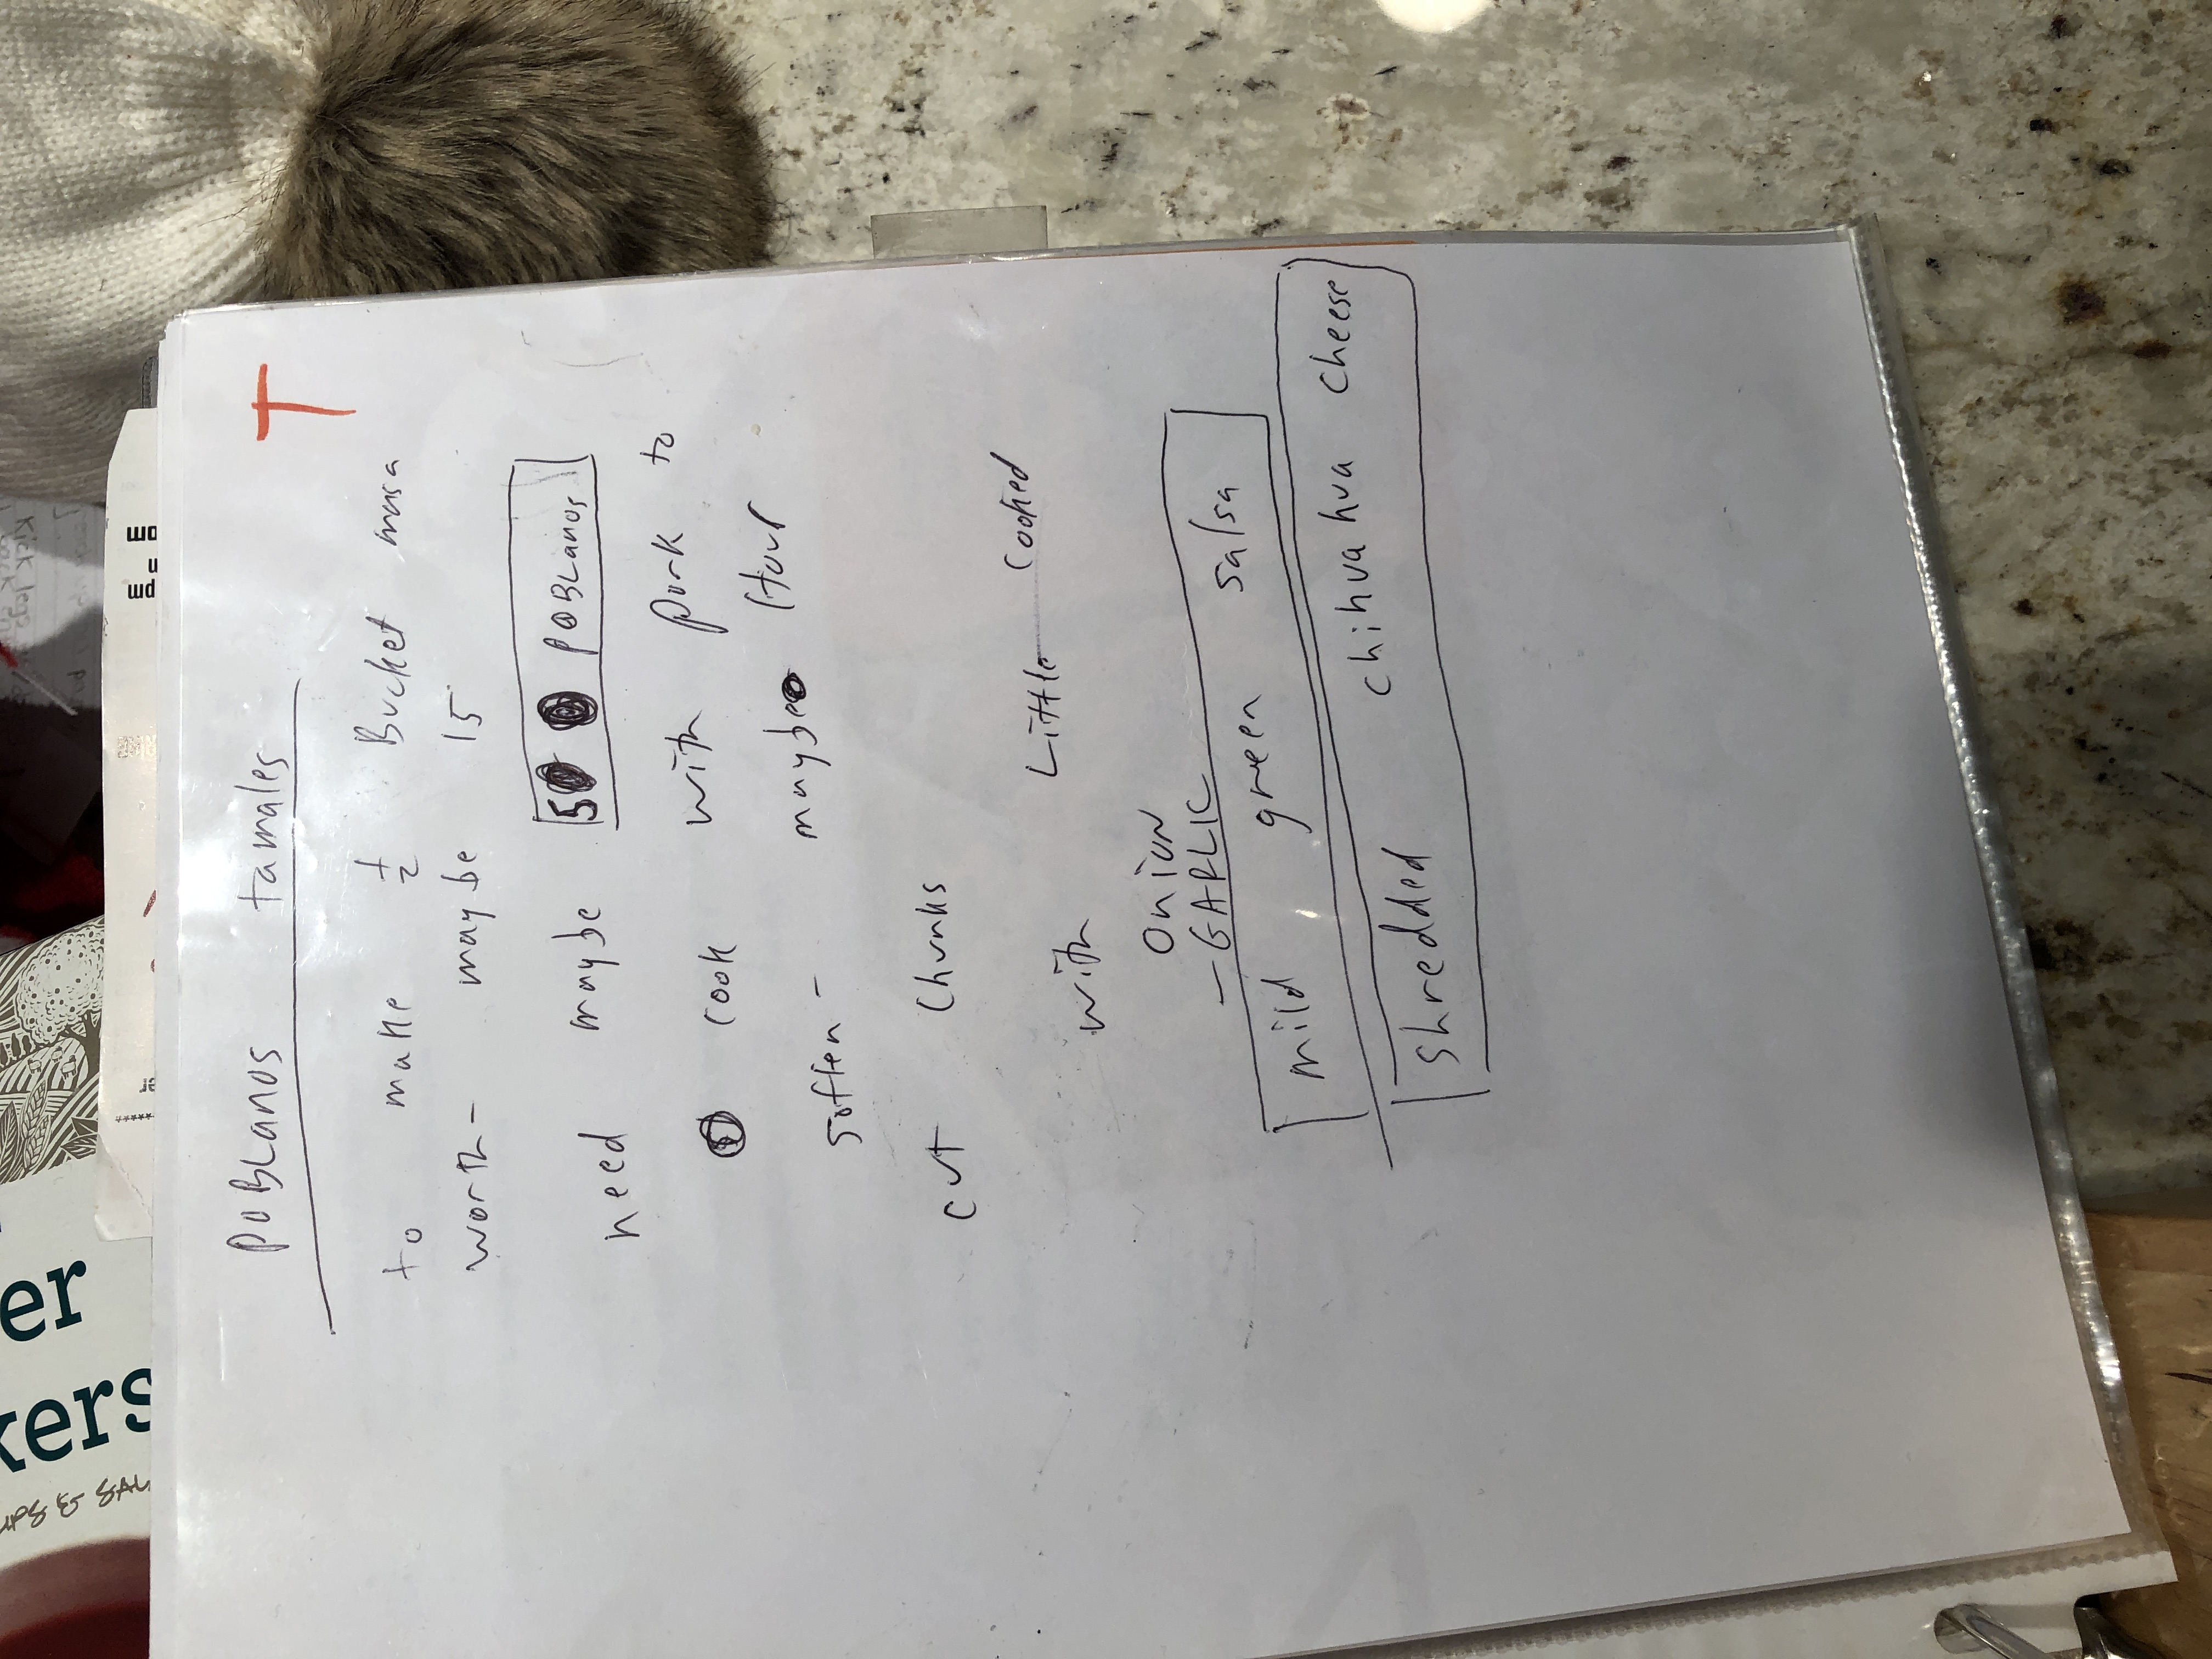 T
POBLANOS tamales
to make 1/2 Bucket masa
worth - maybe 15
need maybe 5 POBLANOS
cook with pork to
soften - maybe Hour
cut chunks
with Little cooked
Onion
- GARLIC
mild green salsa
shredded chihuahua cheese
er
kers